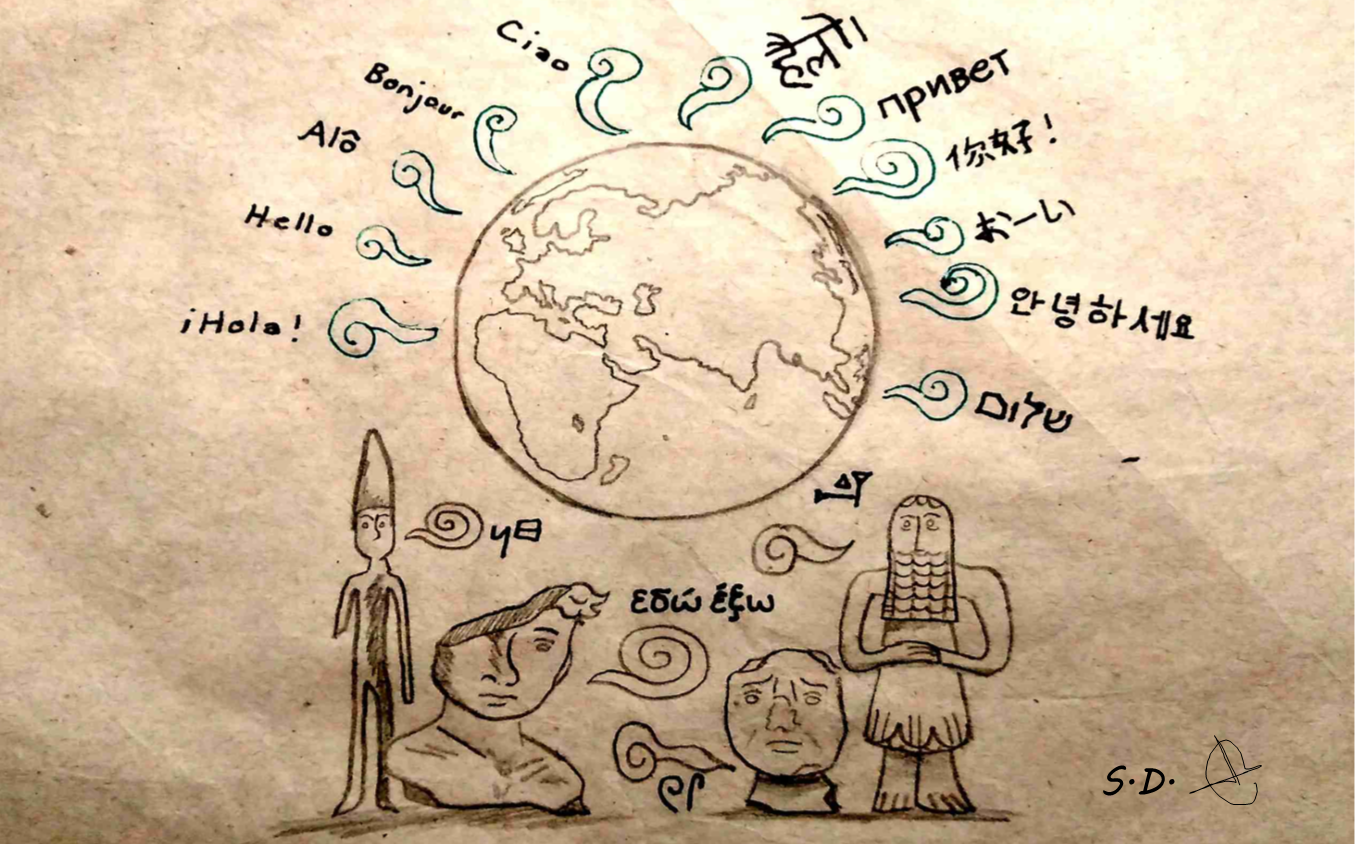 Ciao
Bonjour
Alô
Hello
¡Hola!
हैलो।
привет
你好!
おーい
안녕하세요
שלום
εδώ έξω
S.D.